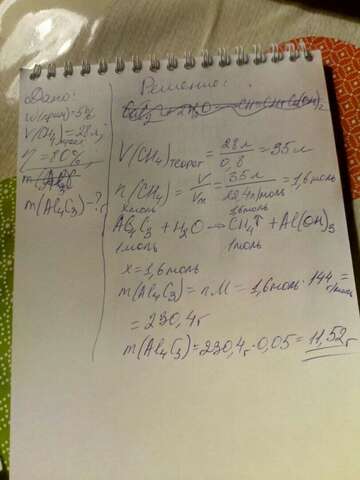 Дано:
w(прим)=5%
V(CH4)практ=28л
η=80%
m(Al4C3)-?
Решение:
V(CH4)теорет=28л/0,8=35л
n(CH4)=V/Vm=35л/22,4л/моль=1,6моль
xмоль 1,6моль
Al4C3 + H2O → CH4↑ + Al(OH)3
1моль 1моль
x=1,6моль
m(Al4C3)=n·M=1,6моль·144г/моль=
=230,4г
m(Al4C3)=230,4г·0,05=11,52г